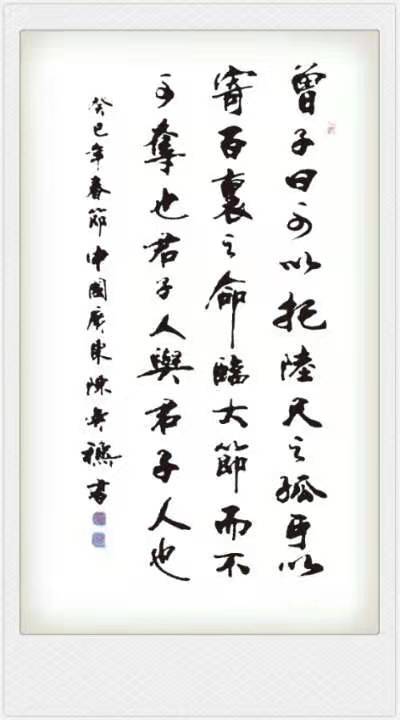 曾子曰可以托陸尺之孤可以
寄百裏之命臨大節而不
可奪也君子人與君子人也
癸巳年春節中國廣東陳書